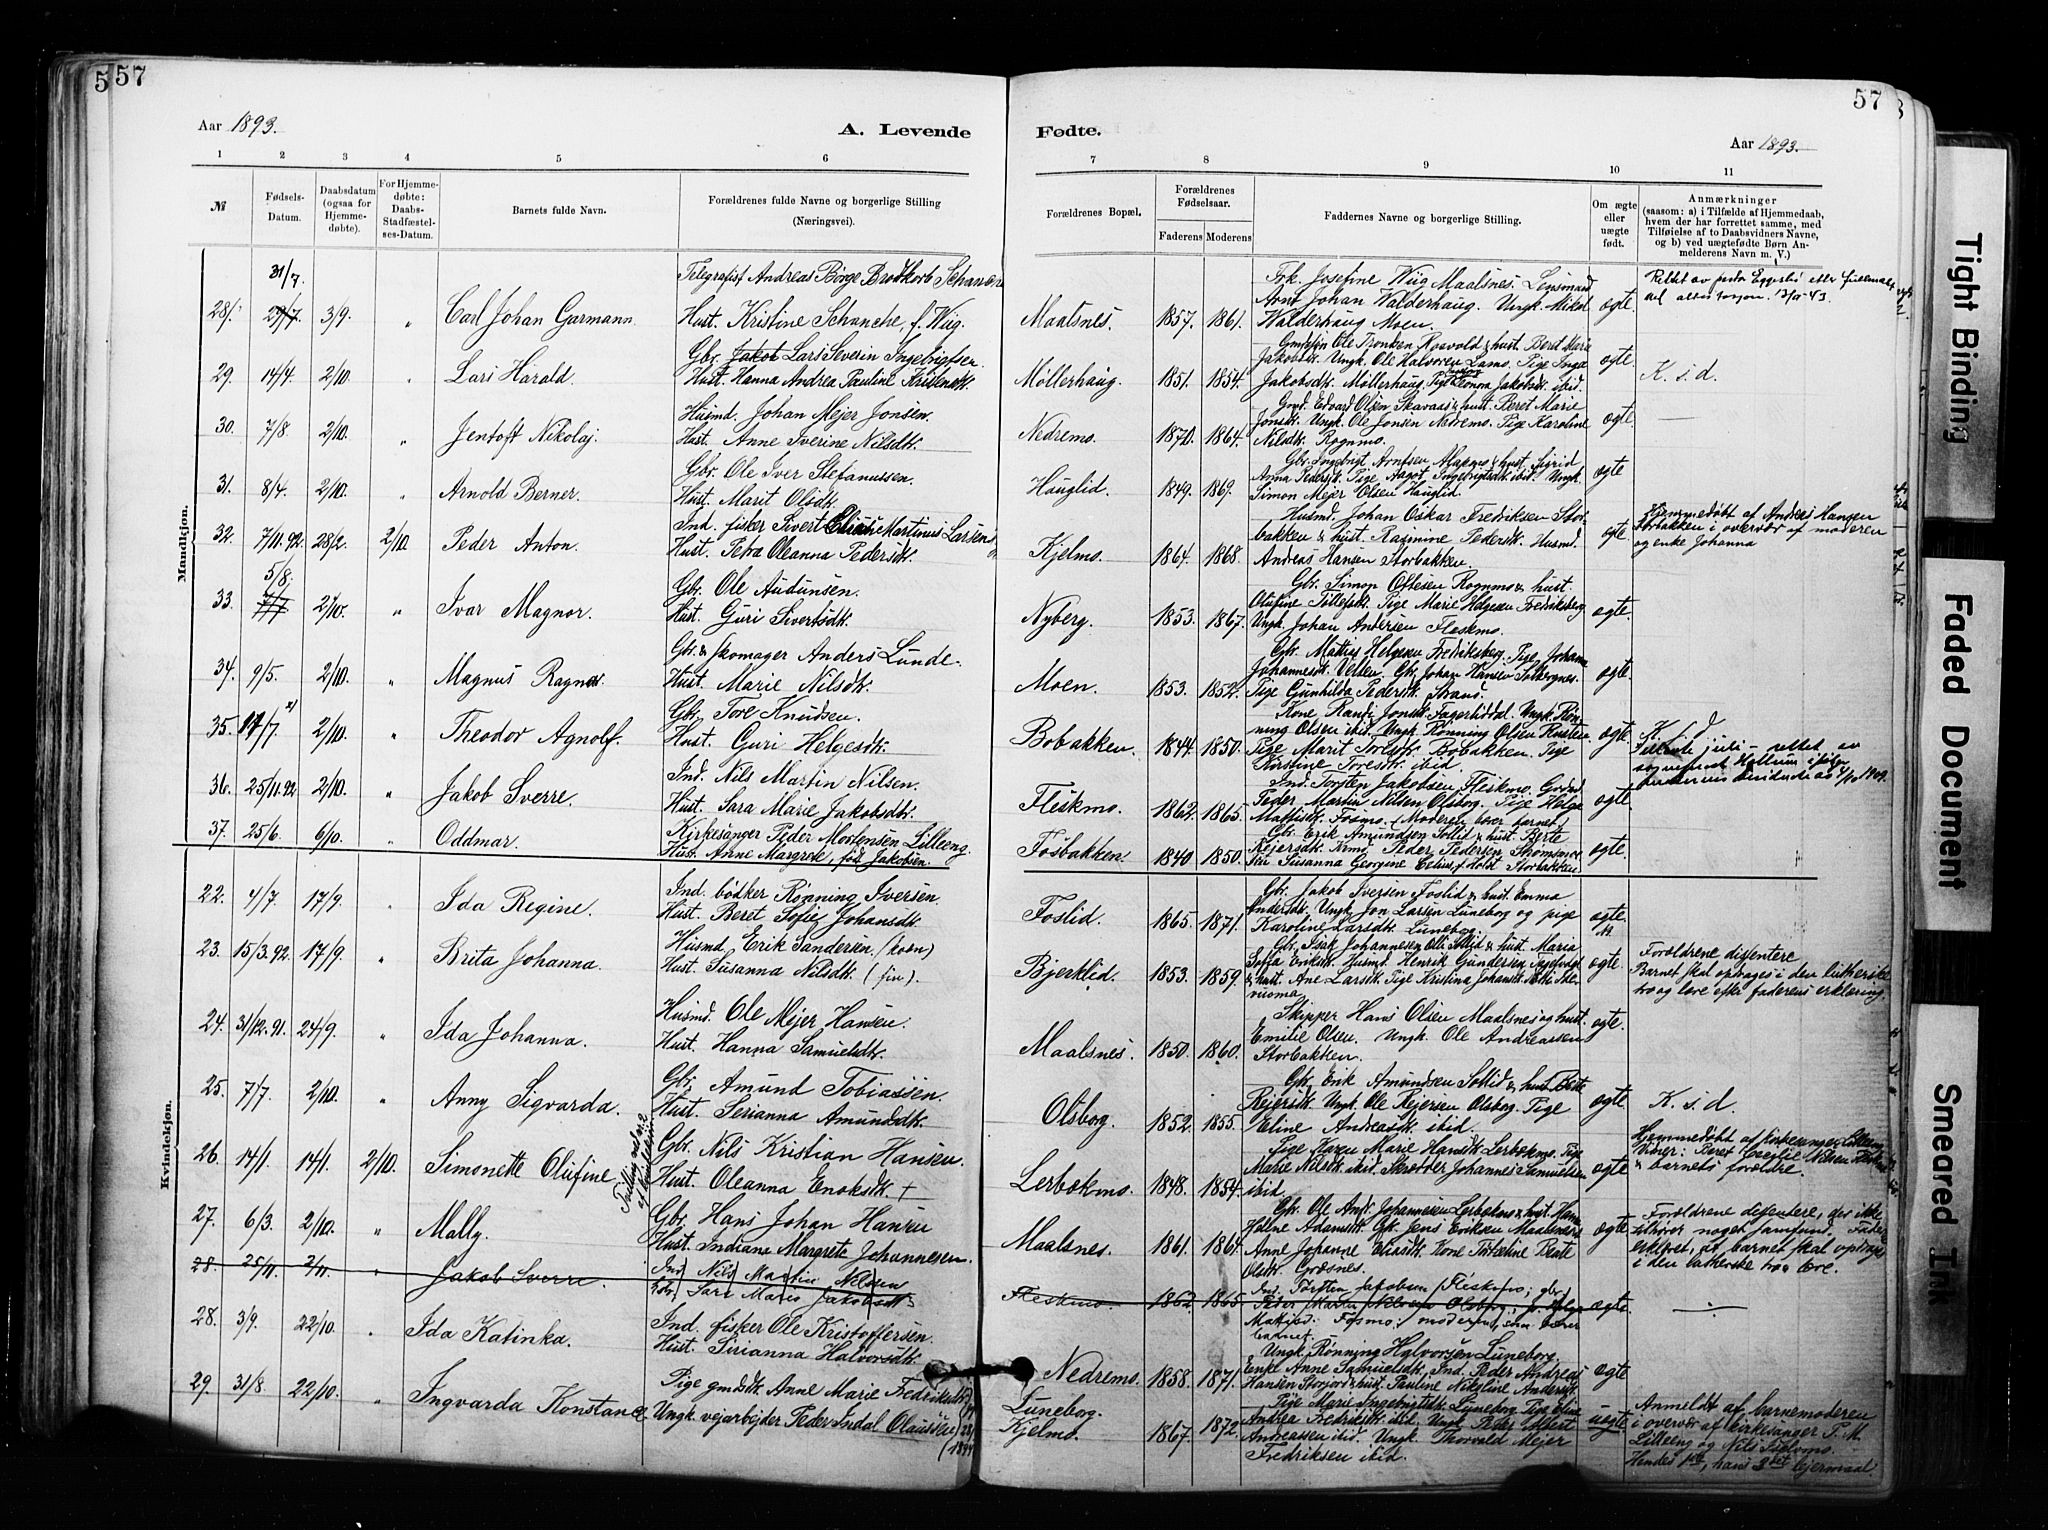 5 57
Aar 1893. A. Levende
1 2 3 4 5 6
№
Fødsels-Datum.
Daabsdatum (ogsaa for Hjemme-døbte).
For Hjemme-døbte: Daabs-Stadfæstel-ses-Datum.
Barnets fulde Navn.
Forældrenes fulde Navne og borgerlige Stilling (Næringsvei).
Mandkjøn.
31/7.
Telegrafist Andreas Börge Brodkorb Schanche
28. 29/7 3/9. " Carl Johan Garmann. Hust. Kristine Schanche, f. Wiig.
Gbr. Jakob Lars Severin Ingebrigtsen
29. 14/4. 2/10. " Lars Harald. Hust. Hanna Andrea Pauline Kristensdt.
Husmd. Johan Mejer Jonsen.
30. 7/8. 2/10. " Jentoft Nikolaj. Hust. Anne Iverine Nilsdt.
Gbr. Ole Iver Stefanussen.
31. 8/4. 2/10. " Arnold Berner. Hust. Marit Olsdt.
Ind. fisker Sivert Martinus Larsen
32. 7/11.92. 28/2. 2/10. Peder Anton. Hust. Petra Oleanna Pedersdt.
5/8.
Gbr. Ole Audunsen.
33. 7/7 2/10. " Ivar Magnor. Hust. Guri Sivertsdt.
Gbr. & skomager Anders Lunde.
34. 9/5. 2/10. " Magnus Ragnar. Hust. Marie Nilsdt.
Gbr. Tore Knudsen.
35. 17/7. 2/10. " Theodor Agnolf. Hust. Guri Helgesdt.
Ind. Nils Martin Nilsen.
36. 25/11.92. 2/10. " Jakob Sverre. Hust. Sara Marie Jakobsdt.
37. 25/6. 6/10. " Oddmar. Kirkesanger Peder Mortensen Lilleeng.
Hust. Anne Margrete, fød Jakobsen.
Kvindekjøn.
22. 4/7. 17/9. " Ida Regine. Ind. bødker Rønning Iversen.
Hust. Beret Sofie Johansdt.
23. 15/3.92. 17/9. " Brita Johanna. Husmd. Erik Sandersen. (kvæn)
Hust. Susanna Nilsdt. (fin).
24. 31/12.91. 24/9. " Ida Johanna. Husmd. Ole Mejer Hansen.
Hust. Hanna Samuelsdt.
25. 7/7. 2/10. " Anny Sigvarda. Gbr. Amund Tobiassen.
Hust. Serianna Amundsdt.
26. 14/1. 14/1. 2/10. Simonette Olufine Gbr. Nils Kristian Hansen.
Hust. Oleanna Enoksdt. +
27. 6/3. 2/10. " Mally. Gbr. Hans Johan Hansen
Hust. Indiana Margrete Johannesen.
28. 25/11. 2/11. " Jakob Sverre. Ind. Nils Martin Nilssen
Sara Marie Jakobsdt.
28. 3/9. 22/10. " Ida Katinka. Ind. fisker Ole Kristoffersen.
Hust. Sirianna Halvorsdt.
29. 31/8. 22/10. " Ingvarda Konstance Pige gmdsdt. Anne Marie Fredriksdt.
Ungk. vejarbejder Peder Indal Olaussen
57
Fødte. Aar 1893.
7 8 9 10 11
Forældrenes Bopæl.
Forældrenes Fødselsaar.
Faderens Moderens
Faddernes Navne og borgerlige Stilling.
Om ægte eller uægte født.
Anmærkninger
(saasom: a) i Tilfælde af Hjemmedaab,
hvem der har forrettet samme, med
Tilføielse af to Daabsvidners Navne,
og b) ved uægtefødte Børn An-
melderens Navn m. V.)
Frk. Josefine Wiig Maalsnes. Lensmand
Maalsnes. 1857. 1861. Arnt Johan Valderhaug. Ungk. Mikal ægte.
Walderhaug Moen.
Beret Marie
Møllerhaug. 1851. 1854. Jakobsdt. Ungk. Ole Halvorsen Lams. Pige Inga ægte K. s. d.
Jakobsdt. Møllerhaug. Pige Leonora Jakobsdt. ibid.
Gmd. Edvard Olsen Skavaas & hust. Beret Marie
Nedremo. 1870. 1864. Jonsdt. Ungk. Ole Jonsen Nedremo. Pige Karoline ægte. —
Nilsdt. Rognmo.
Gbr. Ingebrigt Arntsen & hust. Sigrid
Hauglid. 1849. 1869. Anna Pedersdt. Pige Aagot Ingebrigtsdt. ibid. Ungk. ægte
Simon Mejer Olsen Hauglid.
Husmd. Johan Oskar Fredriksen Stor-
Kjelmo. 1864. 1868. bakken & hust. Rasmine Pedersdt. Husmd. ægte.
Andreas Hansen Storbakken.
Hjemmedøbt af Andreas Hansen
Storbakken i overvær af moderen
og enke Johanna
Gbr. Simon Ottesen Rognmo & hust.
Nyberg. 1853. 1867. Olufine Tollefsdt. Pige Marie Helgesen Fredriksberg ægte.
Ungk. Johan Andersen Fleskmo.
Gbr. Mathias Helgesen Fredriksberg. Pige Johanna
Moen. 1853. 1852. Johannesdt. Gbr. Johan Hansen ægte.
Pige Gunhilda Pedersdt. Strand.
Kone Randi Jonsdt. Fagerlidtal. Ungk. Røn-
Bobakken. 1844. 1850. ning Olsen ibid. Ungk. Rønning Olsen ægte. K. s. d.
Pige Marit Toresdt. Bobakken. Pige
Kirstine Toresdt. ibid.
Ind. Torsten Jakobsen Fleskmo.
Fleskmo. 1862. 1865. Peder Martin Nilsen Olsborg. Pige Helga ægte
Mattisdt. Fosmo. (Moderen bærer barnet)
Gbr. Erik Amundsen Sollid & hust. Berte
Fosbakken. 1840 1850. Rejersdt. Peder Pedersen ægte.
Susanna Georgine f. Holst Storbakken
Gbr. Jakob Iversen Foslid & hust. Emma
Foslid. 1865. 1871. Andersdt. Ungk. Jon Larsen Luneborg og pige ægte
Karoline Larsdt. Luneborg.
Gbr. Isak Johannesen & hust. Maria
Bjerklid. 1853. 1859. Sofia Eriksdt. Husmd. Henrik Gundersen ægte
& hust. Ane Larsdt. Pige Kristina Johansdt.
Forældrene disentere
Barnet skal optages i den lutherske
tro og lære efter faderens erklæring.
Skipper Hans Olsen Maalsnes og hust.
Maalsnes. 1850. 1860. Emilie Olsen. Ungk. Ole Andreassen ægte.
Storbakken.
Gbr. Erik Amundsen Sollid & hust. Berte
Olsborg. 1852. 1855. Rejersdt. Ungk. Ole Rejersen Olsborg. Pige ægte K. s. d.
Eline Andreasdt. ibid.
Pige Karen Marie Hansdt. Lerbekmo. Pige
Lerbekmo. 1848. 1854. Marie Nilsdt. ibid. Skrædder Johannes Samuelsen ægte
ibid.
Hjemmedøbt af kirkesanger Lilleeng
Vidner: Beret Cecilie Nilsen
& barnets forældre.
Gbr. Ole Johannesen Lerbekmo & hust.
Maalsnes. 1861. 1864. Adamsdt. Gbr. Jens Eriksen Maalsnes. ægte
Anne Johanne Eliasdt. Kone Beate
Olsdt. Græsnes.
Forældrene disentere, der ikke
tilhører noget samfund. Fader
erklæret, at barnet skal optages
i den lutherske tro & lære.
Fleskmo. 1862. 1865. Torsten Jakobsen Fleskmo; gbr. ægte. —
Peder Martin Nilssen Olsborg
Mattisd. Fosmo; moderen
barnet.
Ungk. Rønning Halvorsen Luneborg.
Nedremo. 1858. 1871. Enke Anne Samuelsdt. Ind. Peder Andreas ægte
Hansen Storjord & hust. Pauline Nikoline Andersdt.
Pige Marie Ingebrigtsdt. Luneborg. Pige
Luneborg.
Kjelmo. 1867. 1872. Andrea Fredriksdt. ibid. Ungk. Peder uægte
Andreassen ibid. Ungk. Thorvald Mejer
Fredriksen ibid.
Anmeldt af barnemoderen
i overvær af kirkesanger P. M.
Lilleeng og Nils
Hendes 1ste, hans 3det lejermaal.
Tight Binding
Faded Document
Smeared Ink